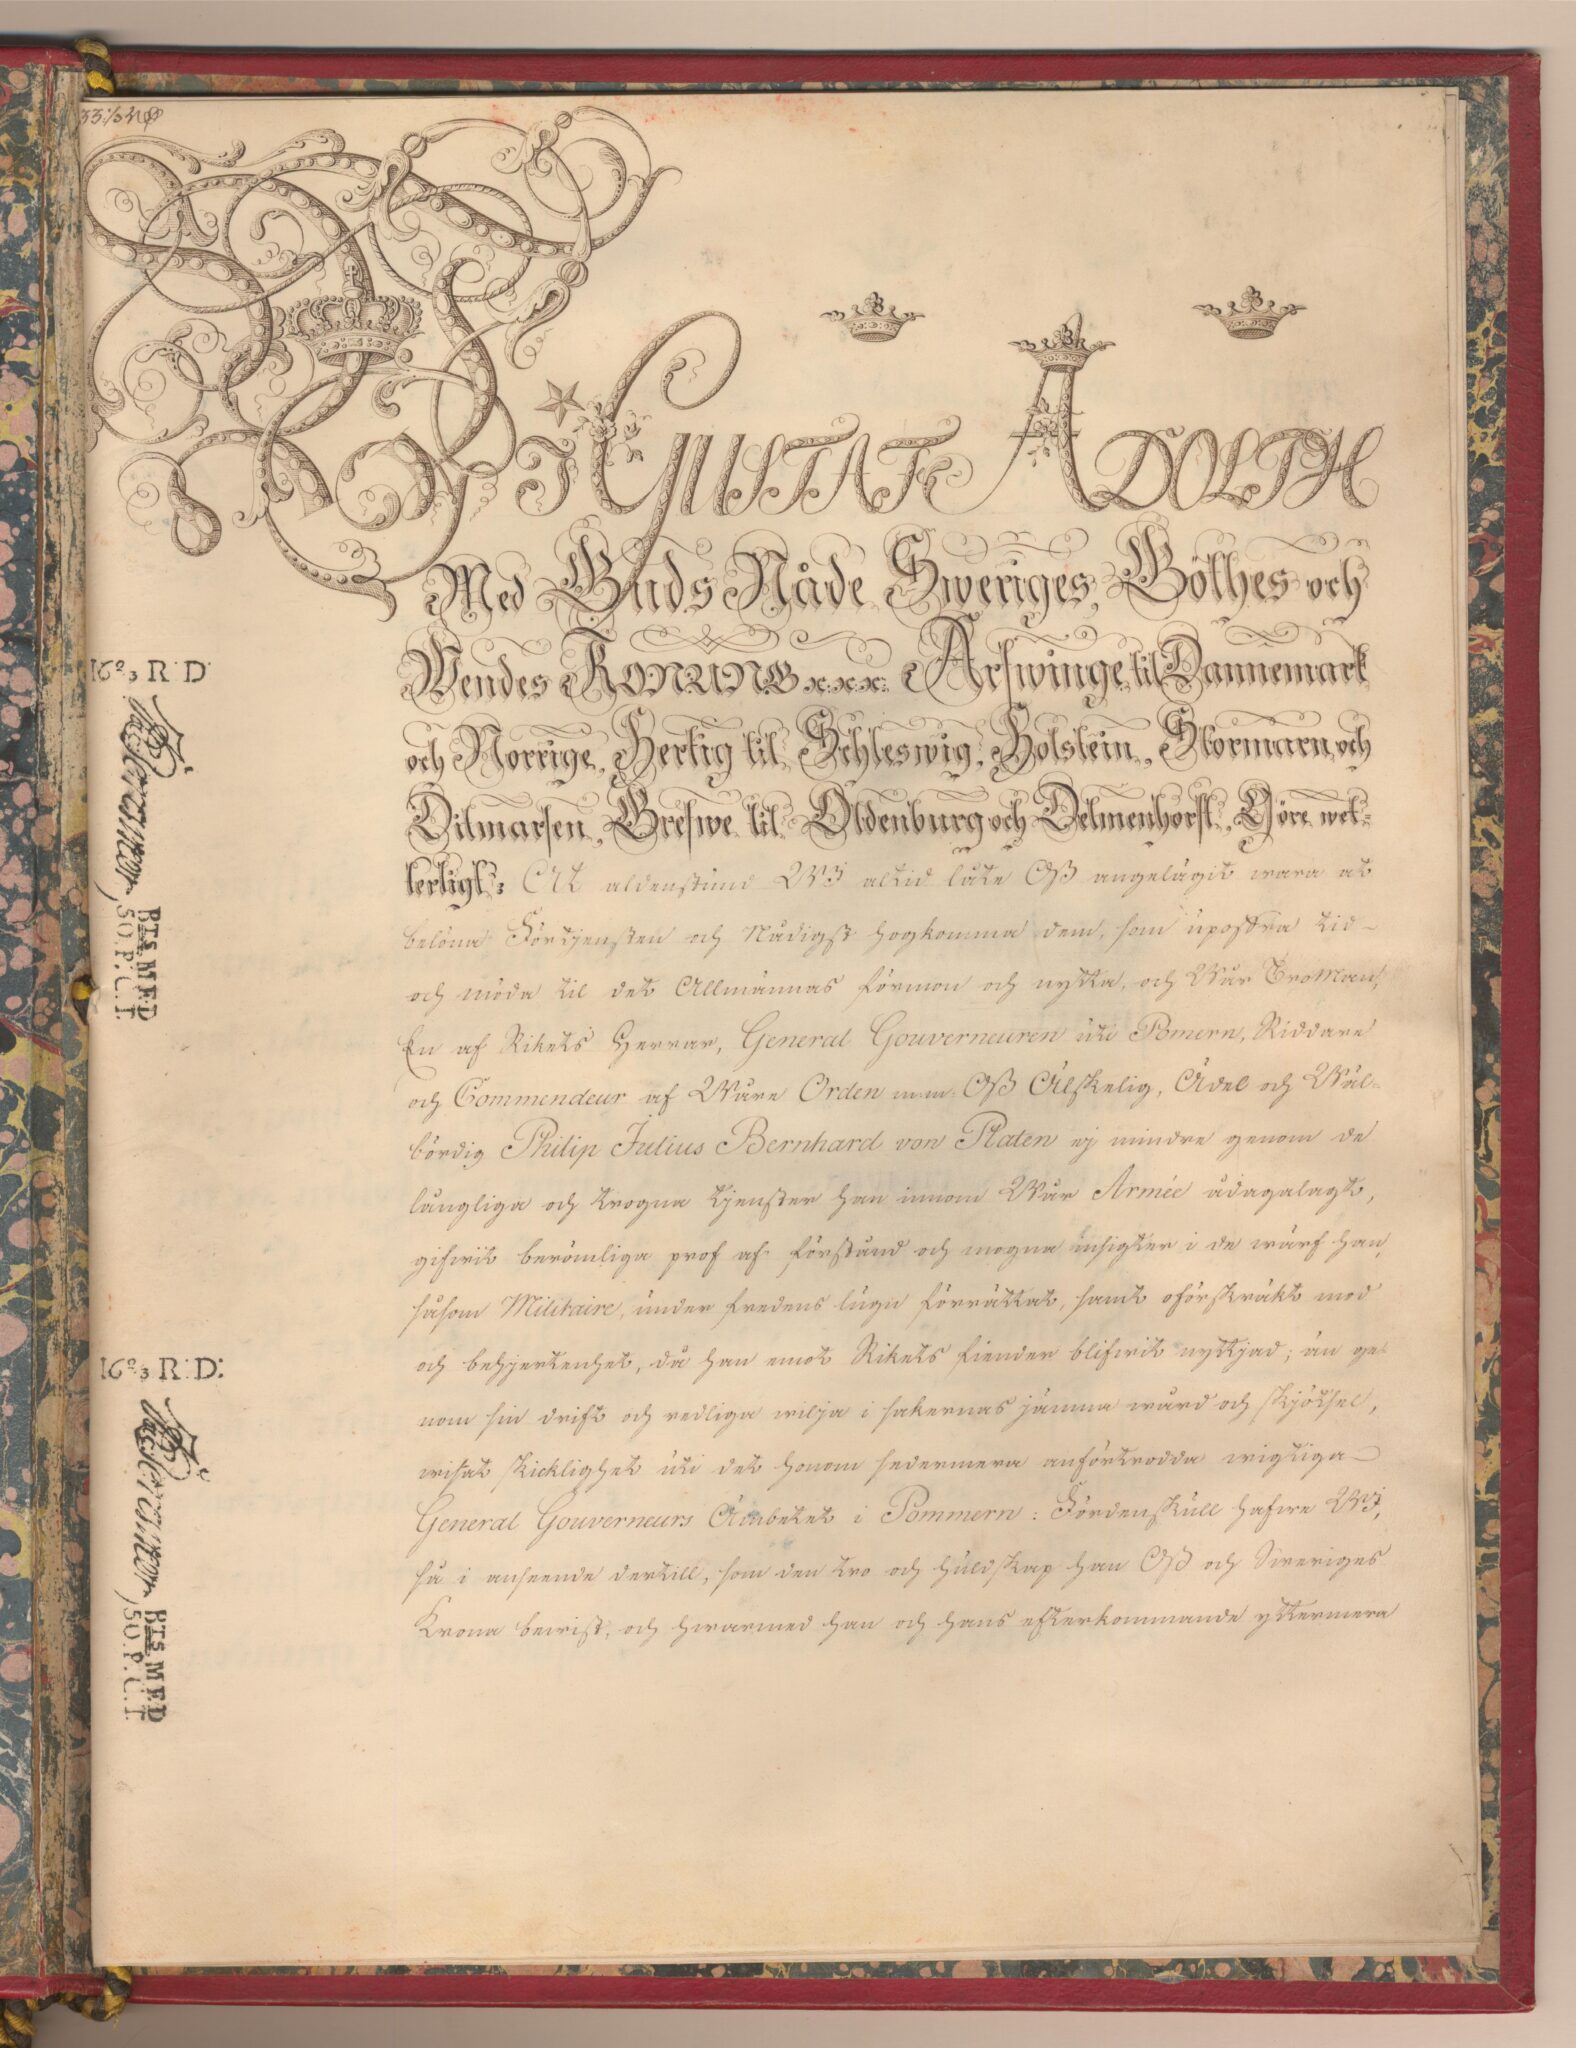 WJ GUSTAF ADOLPH
Med Guds Nåde Sweriges, Göthes och
Wendes KONUNG x:x:x: Arfwinge til Dannemark
och Norrige, Hertig til Schleswig, Holstein, Stormarn och
Ditmarsen, Grefwe til Oldenburg och Delmenhorst, Göre wet-
terligt: At aldenstund WJ altid låte Oß angelägit wara at
belöna Förtjensten och Nådigst hogkomma dem, som upoffra tid
och möda til det Allmännas förmon och nytta, och Wår TroMan,
En af Rikets Herrar, General Gouverneuren uti Pomern, Riddare
och Commendeur af Wåre Orden m:m: Oß Älskelig, Ädel och Wäl-
bördig Philip Julius Bernhard von Platen ej mindre genom de
långliga och trogna tjenster han innom Wår Armée ådagalagt,
gifwit berömliga prof af förstånd och mogna insigter i de wärf han,
såsom Militaire, under fredens lugn förrättat, samt oförskräkt mod
och behjertenhet, då han emot Rikets fiender blifwit nyttjad; än ge-
nom sin drift och redliga wilja i sakernas jämna wård och skjötsel,
wisat skicklighet uti det honom sedermera anförtrodda wigtiga
General Gouverneurs Ämbetet i Pommern: Fördenskull hafwe WJ,
så i anseende dertill, som den tro och huldskap han Oß och Sweriges
Krona bewist, och hwarmed han och hans efterkommande yttermera
16 2/3 R:D:
BTS. MED
50. P. C. T.
16 2/3 R:D:
BTS. MED
50. P. C. T.